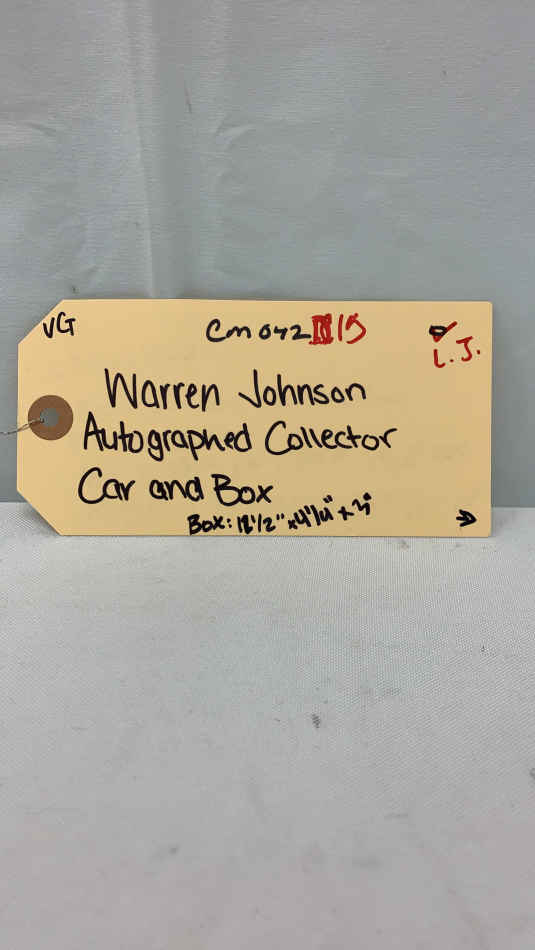 VG
Cm042 15
L.J.
Warren Johnson
Autographed Collector
Car and Box
Box: x 4 1/4" x 3"